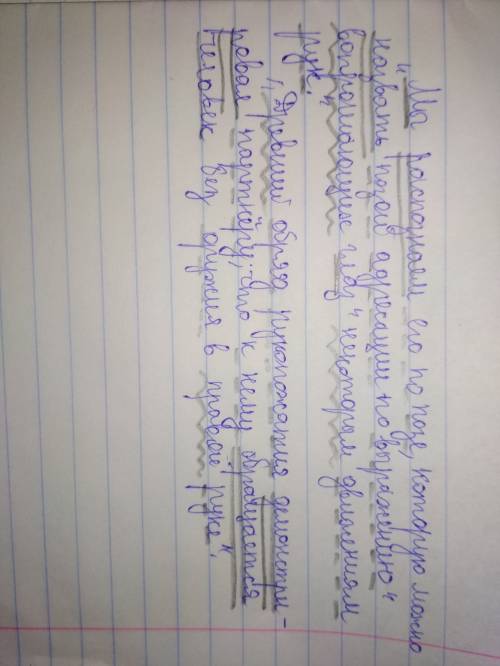 „Мы распознаем его по позе, которую можно
назвать позой адресации по выражению „
вопрошающих глаз" некоторым движениям
рук."
„Древний обряд рукопожатия демонстри-
ровал партнёру, что к нему обращается
человек без оружия в правой руке".